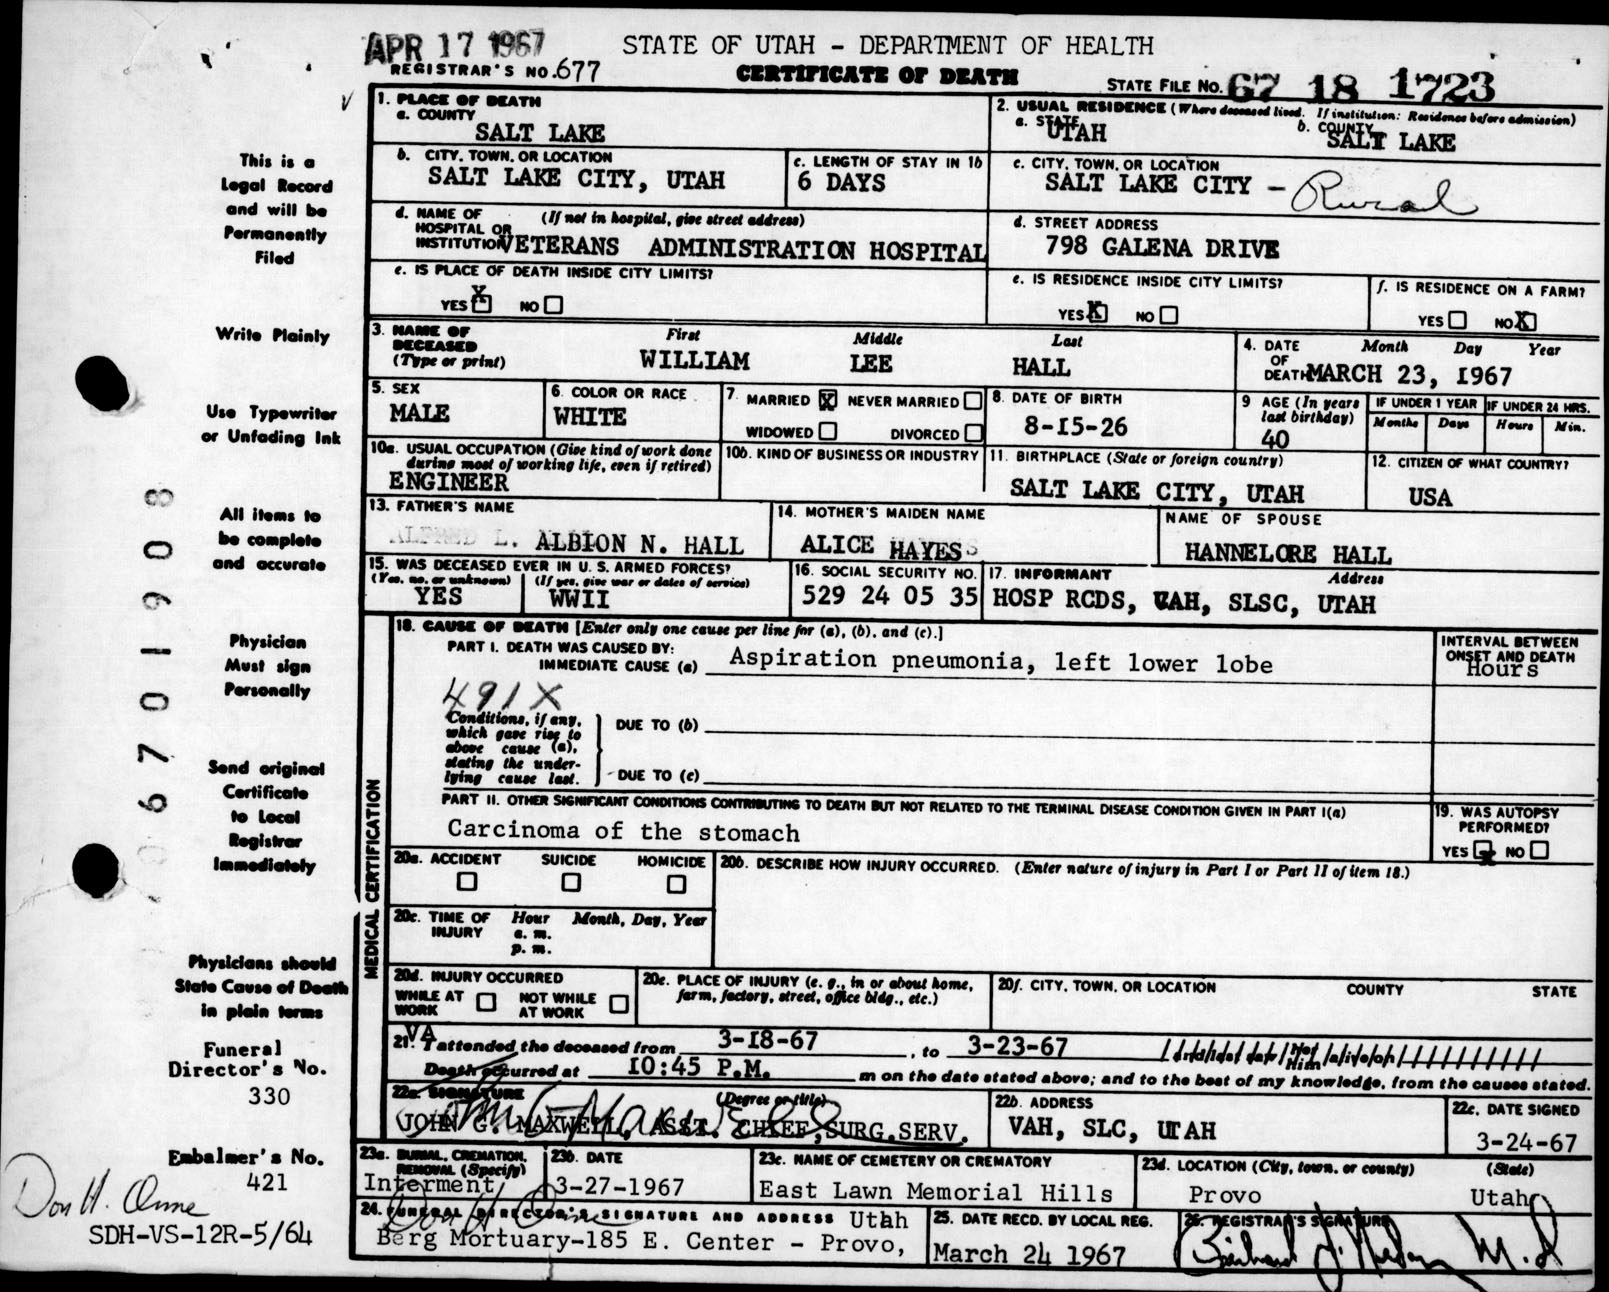 APR 17 1967
STATE OF UTAH - DEPARTMENT OF HEALTH
REGISTRAR'S NO. 677
CERTIFICATE OF DEATH
STATE FILE NO. 67 18 1723
1. PLACE OF DEATH
a. COUNTY
SALT LAKE
2. USUAL RESIDENCE (Where deceased lived. If institution: Residence before admission)
a. STATE UTAH
b. COUNTY SALT LAKE
b. CITY, TOWN, OR LOCATION
SALT LAKE CITY, UTAH
c. LENGTH OF STAY IN 1b
6 DAYS
c. CITY, TOWN, OR LOCATION
SALT LAKE CITY - Rural
d. NAME OF HOSPITAL OR INSTITUTION (If not in hospital, give street address)
VETERANS ADMINISTRATION HOSPITAL
d. STREET ADDRESS
798 GALENA DRIVE
e. IS PLACE OF DEATH INSIDE CITY LIMITS?
YES X NO
e. IS RESIDENCE INSIDE CITY LIMITS?
YES X NO
f. IS RESIDENCE ON A FARM?
YES NO X
3. NAME OF DECEASED (Type or print)
First Middle Last
WILLIAM LEE HALL
4. DATE OF DEATH Month Day Year
MARCH 23, 1967
5. SEX
MALE
6. COLOR OR RACE
WHITE
7. MARRIED X NEVER MARRIED
WIDOWED DIVORCED
8. DATE OF BIRTH
8-15-26
9 AGE (In years last birthday)
40
IF UNDER 1 YEAR IF UNDER 24 HRS.
Months Days Hours Min.
10a. USUAL OCCUPATION (Give kind of work done during most of working life, even if retired)
ENGINEER
10b. KIND OF BUSINESS OR INDUSTRY
11. BIRTHPLACE (State or foreign country)
SALT LAKE CITY, UTAH
12. CITIZEN OF WHAT COUNTRY?
USA
13. FATHER'S NAME
ALFRED L. ALBION N. HALL
14. MOTHER'S MAIDEN NAME
ALICE HAYES
NAME OF SPOUSE
HANNELORE HALL
15. WAS DECEASED EVER IN U. S. ARMED FORCES?
(Yes, no, or unknown) (If yes, give war or dates of service)
YES WWII
16. SOCIAL SECURITY NO.
529 24 05 35
17. INFORMANT Address
HOSP RCDS, VAH, SLSC, UTAH
MEDICAL CERTIFICATION
18. CAUSE OF DEATH [Enter only one cause per line for (a), (b), and (c).]
PART I. DEATH WAS CAUSED BY:
IMMEDIATE CAUSE (a) Aspiration pneumonia, left lower lobe
INTERVAL BETWEEN ONSET AND DEATH
Hours
491X
Conditions, if any, which gave rise to above cause (a), stating the underlying cause last.
DUE TO (b)
DUE TO (c)
PART II. OTHER SIGNIFICANT CONDITIONS CONTRIBUTING TO DEATH BUT NOT RELATED TO THE TERMINAL DISEASE CONDITION GIVEN IN PART I(a)
Carcinoma of the stomach
19. WAS AUTOPSY PERFORMED?
YES X NO
20a. ACCIDENT SUICIDE HOMICIDE
20b. DESCRIBE HOW INJURY OCCURRED. (Enter nature of injury in Part I or Part II of item 18.)
20c. TIME OF INJURY Hour Month, Day, Year
a. m.
p. m.
20d. INJURY OCCURRED
WHILE AT WORK NOT WHILE AT WORK
20e. PLACE OF INJURY (e. g., in or about home, farm, factory, street, office bldg., etc.)
20f. CITY, TOWN, OR LOCATION COUNTY STATE
21. VA I attended the deceased from 3-18-67, to 3-23-67
Death occurred at 10:45 P.M. m on the date stated above; and to the best of my knowledge, from the causes stated.
22a. SIGNATURE (Degree or title)
JOHN G. MAXWELL, ASST. CHIEF, SURG.SERV.
22b. ADDRESS
VAH, SLC, UTAH
22c. DATE SIGNED
3-24-67
23a. BURIAL, CREMATION, REMOVAL (Specify)
Interment
23b. DATE
3-27-1967
23c. NAME OF CEMETERY OR CREMATORY
East Lawn Memorial Hills
23d. LOCATION (City, town, or county) (State)
Provo Utah
24. FUNERAL DIRECTOR'S SIGNATURE AND ADDRESS Utah
Berg Mortuary-185 E. Center - Provo,
25. DATE RECD. BY LOCAL REG.
March 24 1967
26. REGISTRAR'S SIGNATURE
M.D
This is a
Legal Record
and will be
Permanently
Filed
Write Plainly
Use Typewriter
or Unfading Ink
All items to
be complete
and accurate
Physician
Must sign
Personally
Send original
Certificate
to Local
Registrar
Immediately
Physicians should
State Cause of Death
in plain terms
Funeral
Director's No.
330
Embalmer's No.
421
SDH-VS-12R-5/64
06701908